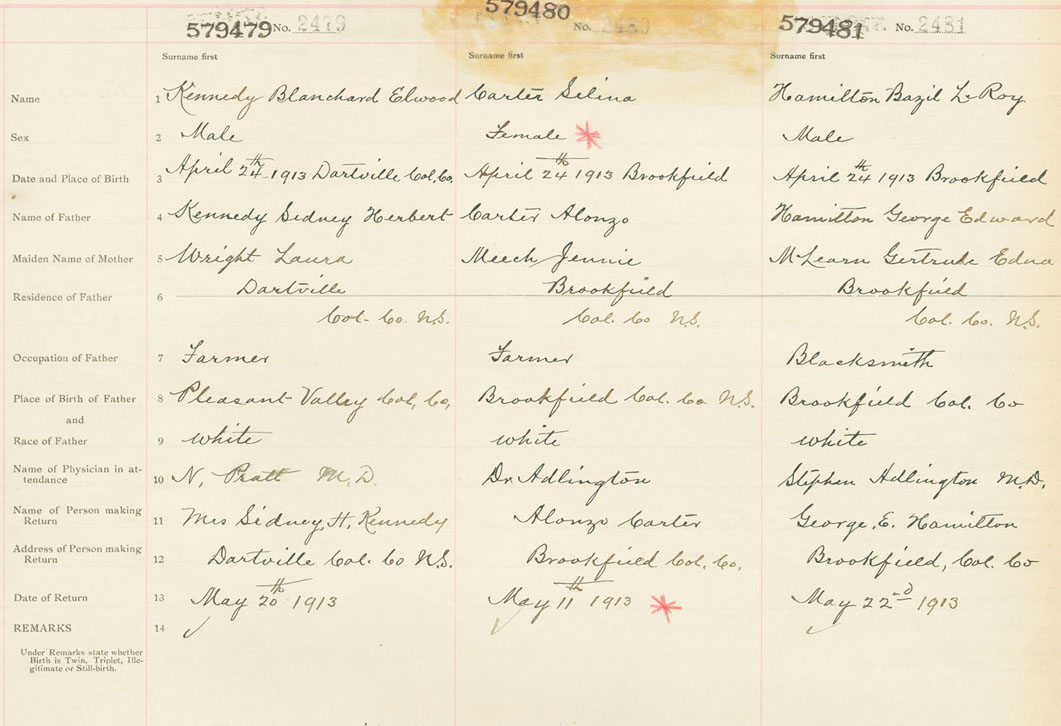 579479 No. 2479 579480 No. 2480 579481 No. 2481
Surname first Surname first Surname first
Name 1 Kennedy Blanchard Elwood Carter Selina Hamilton Bazil LeRoy
Sex 2 Male Female Male
Date and Place of Birth 3 April 24th 1913 Dartville Col. Co. April 24th 1913 Brookfield April 24th 1913 Brookfield
Name of Father 4 Kennedy Sidney Herbert Carter Alonzo Hamilton George Edward
Maiden Name of Mother 5 Wright Laura Meech Jennie McLearn Gertrude Edna
Residence of Father 6 Dartville Brookfield Brookfield
Col. Co N.S. Col. Co N.S. Col. Co. N.S.
Occupation of Father 7 Farmer Farmer Blacksmith
Place of Birth of Father 8 Pleasant Valley Col, Co, Brookfield Col. Co N.S. Brookfield Col. Co
and
Race of Father 9 white white white
Name of Physician in at-
tendance 10 N, Pratt M.D. Dr. Adlington Stephen Adlington M.D.
Name of Person making
Return 11 Mrs Sidney H. Kennedy Alonzo Carter George. E. Hamilton
Address of Person making
Return 12 Dartville Col. Co N.S. Brookfield Col. Co. Brookfield, Col. Co
Date of Return 13 May 20th 1913 May 11th 1913 May 22nd 1913
REMARKS 14
Under Remarks state whether
Birth is Twin, Triplet, Ille-
gitimate or Still-birth.